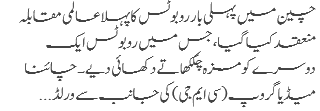 چین میں پہلی بار روبوٹس کا پہلا عالمی مقابلہ
منعقد کیا گیا، جس میں روبوٹس ایک
دوسرے کو مزہ چکھاتے دکھائی دیے۔ چائنا
میڈیا گروپ (سی ایم جی) کی جانب سے ورلڈ...